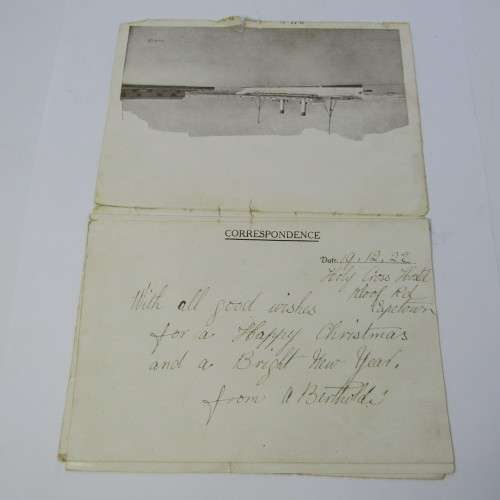 CORRESPONDENCE
Date 19.12.22
Holy Cross
Kloof Rd
With all good wishes Capetown
for a Happy Christmas
and a Bright New Year.
from A Berthold